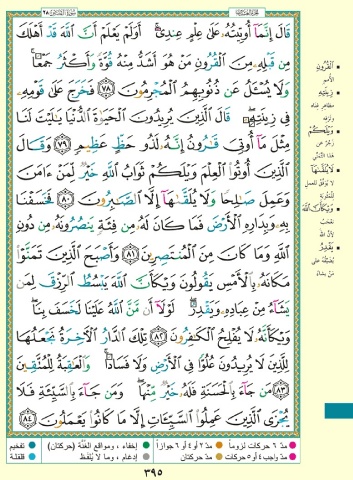 سُورَةُ القَصَصِ ٢٨
قَالَ إِنَّمَآ أُوتِيتُهُۥ عَلَىٰ عِلْمٍ عِندِىٓ ۚ أَوَلَمْ يَعْلَمْ أَنَّ ٱللَّهَ قَدْ أَهْلَكَ
مِن قَبْلِهِۦ مِنَ ٱلْقُرُونِ مَنْ هُوَ أَشَدُّ مِنْهُ قُوَّةً وَأَكْثَرُ جَمْعًا ۚ
وَلَا يُسْـَٔلُ عَن ذُنُوبِهِمُ ٱلْمُجْرِمُونَ ﴿٧٨﴾ فَخَرَجَ عَلَىٰ قَوْمِهِۦ
فِى زِينَتِهِۦ ۖ قَالَ ٱلَّذِينَ يُرِيدُونَ ٱلْحَيَوٰةَ ٱلدُّنْيَا يَٰلَيْتَ لَنَا
مِثْلَ مَآ أُوتِىَ قَٰرُونُ إِنَّهُۥ لَذُو حَظٍّ عَظِيمٍ ﴿٧٩﴾ وَقَالَ
ٱلَّذِينَ أُوتُوا۟ ٱلْعِلْمَ وَيْلَكُمْ ثَوَابُ ٱللَّهِ خَيْرٌ لِّمَنْ ءَامَنَ
وَعَمِلَ صَٰلِحًا وَلَا يُلَقَّىٰهَآ إِلَّا ٱلصَّٰبِرُونَ ﴿٨٠﴾ فَخَسَفْنَا
بِهِۦ وَبِدَارِهِ ٱلْأَرْضَ فَمَا كَانَ لَهُۥ مِن فِئَةٍ يَنصُرُونَهُۥ مِن دُونِ
ٱللَّهِ وَمَا كَانَ مِنَ ٱلْمُنتَصِرِينَ ﴿٨١﴾ وَأَصْبَحَ ٱلَّذِينَ تَمَنَّوْا۟
مَكَانَهُۥ بِٱلْأَمْسِ يَقُولُونَ وَيْكَأَنَّ ٱللَّهَ يَبْسُطُ ٱلرِّزْقَ لِمَن
يَشَآءُ مِنْ عِبَادِهِۦ وَيَقْدِرُ ۖ لَوْلَآ أَن مَّنَّ ٱللَّهُ عَلَيْنَا لَخَسَفَ بِنَا ۖ
وَيْكَأَنَّهُۥ لَا يُفْلِحُ ٱلْكَٰفِرُونَ ﴿٨٢﴾ تِلْكَ ٱلدَّارُ ٱلْءَاخِرَةُ نَجْعَلُهَا
لِلَّذِينَ لَا يُرِيدُونَ عُلُوًّا فِى ٱلْأَرْضِ وَلَا فَسَادًا ۚ وَٱلْعَٰقِبَةُ لِلْمُتَّقِينَ
﴿٨٣﴾ مَن جَآءَ بِٱلْحَسَنَةِ فَلَهُۥ خَيْرٌ مِّنْهَا ۖ وَمَن جَآءَ بِٱلسَّيِّئَةِ فَلَا
يُجْزَى ٱلَّذِينَ عَمِلُوا۟ ٱلسَّيِّـَٔاتِ إِلَّا مَا كَانُوا۟ يَعْمَلُونَ ﴿٨٤﴾
القُرُونِ
الأمم
زِينَتِهِ
وَيْلَكُمْ
لا يُلَقَّاهَا
وَيْكَأَنَّ اللَّهَ
يَقْدِرُ
مدّ ٦ حركات لزوماً مدّ ٢ أو ٤ أو ٦ جوازاً إخفاء، ومواقع الغُنَّة (حركتان) تفخيم
مدّ واجب ٤ أو ٥ حركات مدّ حركتان إدغام، وما لا يُلفَظ قلقلة
٣٩٥